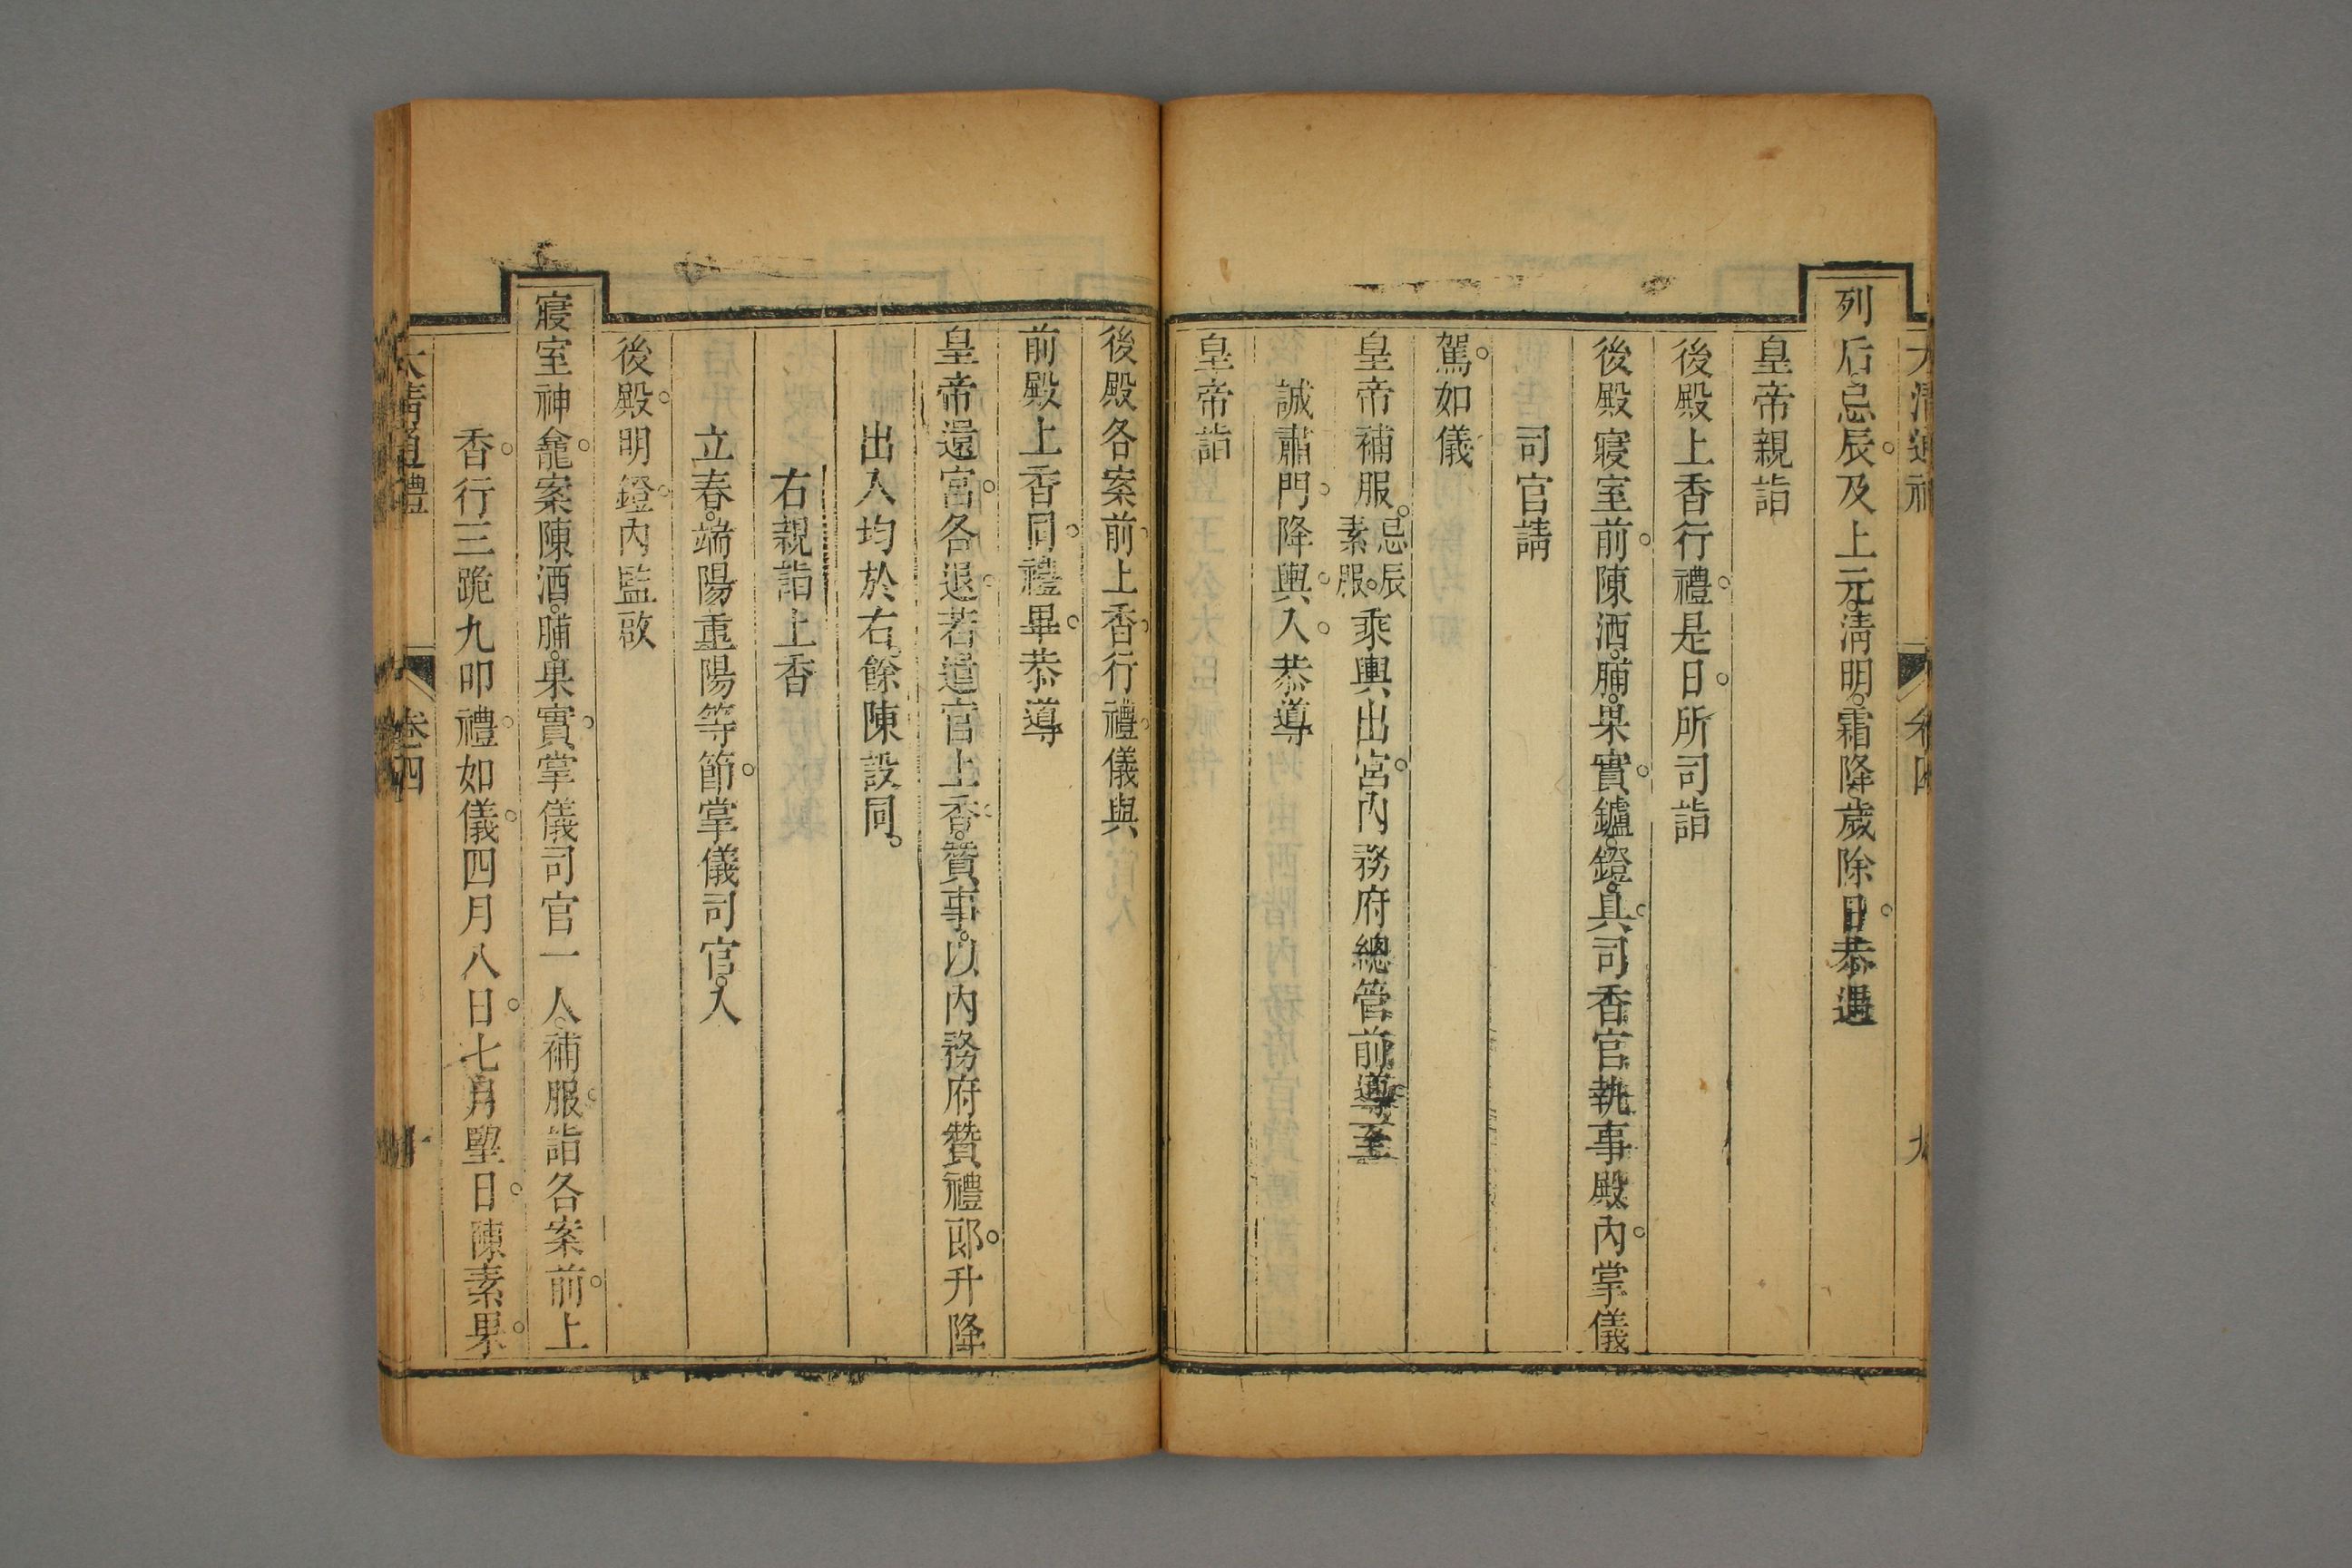 列后忌辰及上元清明霜降歲除日恭遇
皇帝親詣
後殿上香行禮是日所司詣
後殿寢室前陳酒脯果實鑪鐙具司香官執事殿內掌儀
司官請
駕如儀
皇帝補服忌辰素服乘輿出宮內務府總管前導至
誠肅門降輿入恭導
皇帝詣
後殿各案前上香行禮儀與
前殿上香同禮畢恭導
皇帝還宮各退若遣官上香贊事以內務府贊禮郎升降
出入均於右餘陳設同
右親詣上香
立春端陽重陽等節掌儀司官入
後殿明鐙內監啟
寢室神龕案陳酒脯果實掌儀司官一人補服詣各案前上
香行三跪九叩禮如儀四月八日七月望日陳素果
大清通禮 卷四